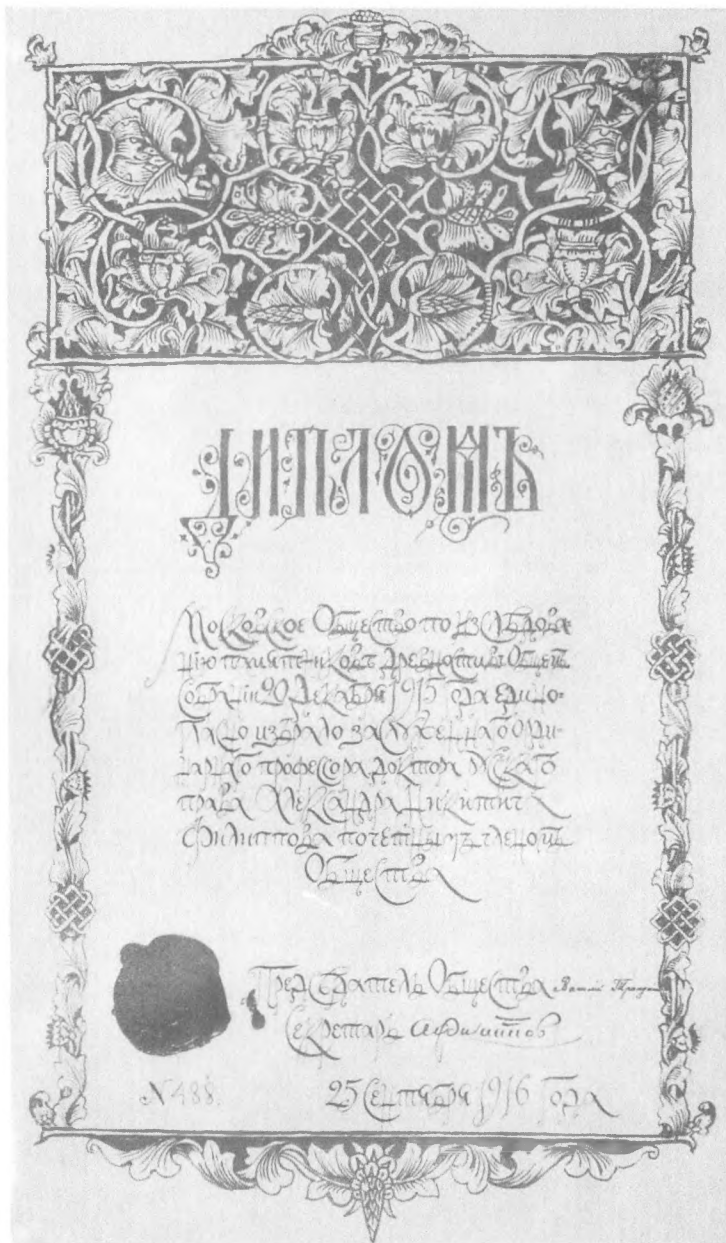 ДИПЛОМЪ
Московское Общество по изслѣдова
нію памятниковъ древности въ Общемъ
Собраніи 20 Декабря 1915 года едино-
гласно избрало заслуженнаго орди-
нарнаго профессора доктора русскаго
права Александра Никитича
Филиппова почетнымъ членомъ
Общества
Предсѣдатель Общества
Секретарь АФилиппов
N 488.
25 Сентября 1916 года